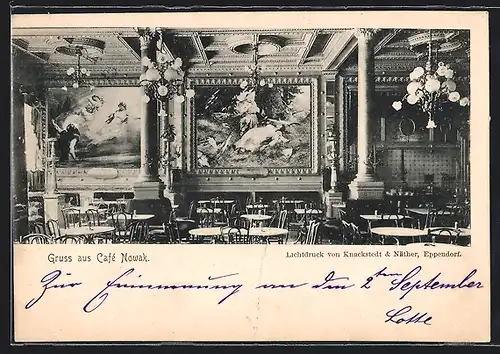 Gruss aus Café Nowak.
Lichtdruck von Knackstedt & Näther, Eppendorf.
Zur Erinnerung an den 2ten September
Lotte